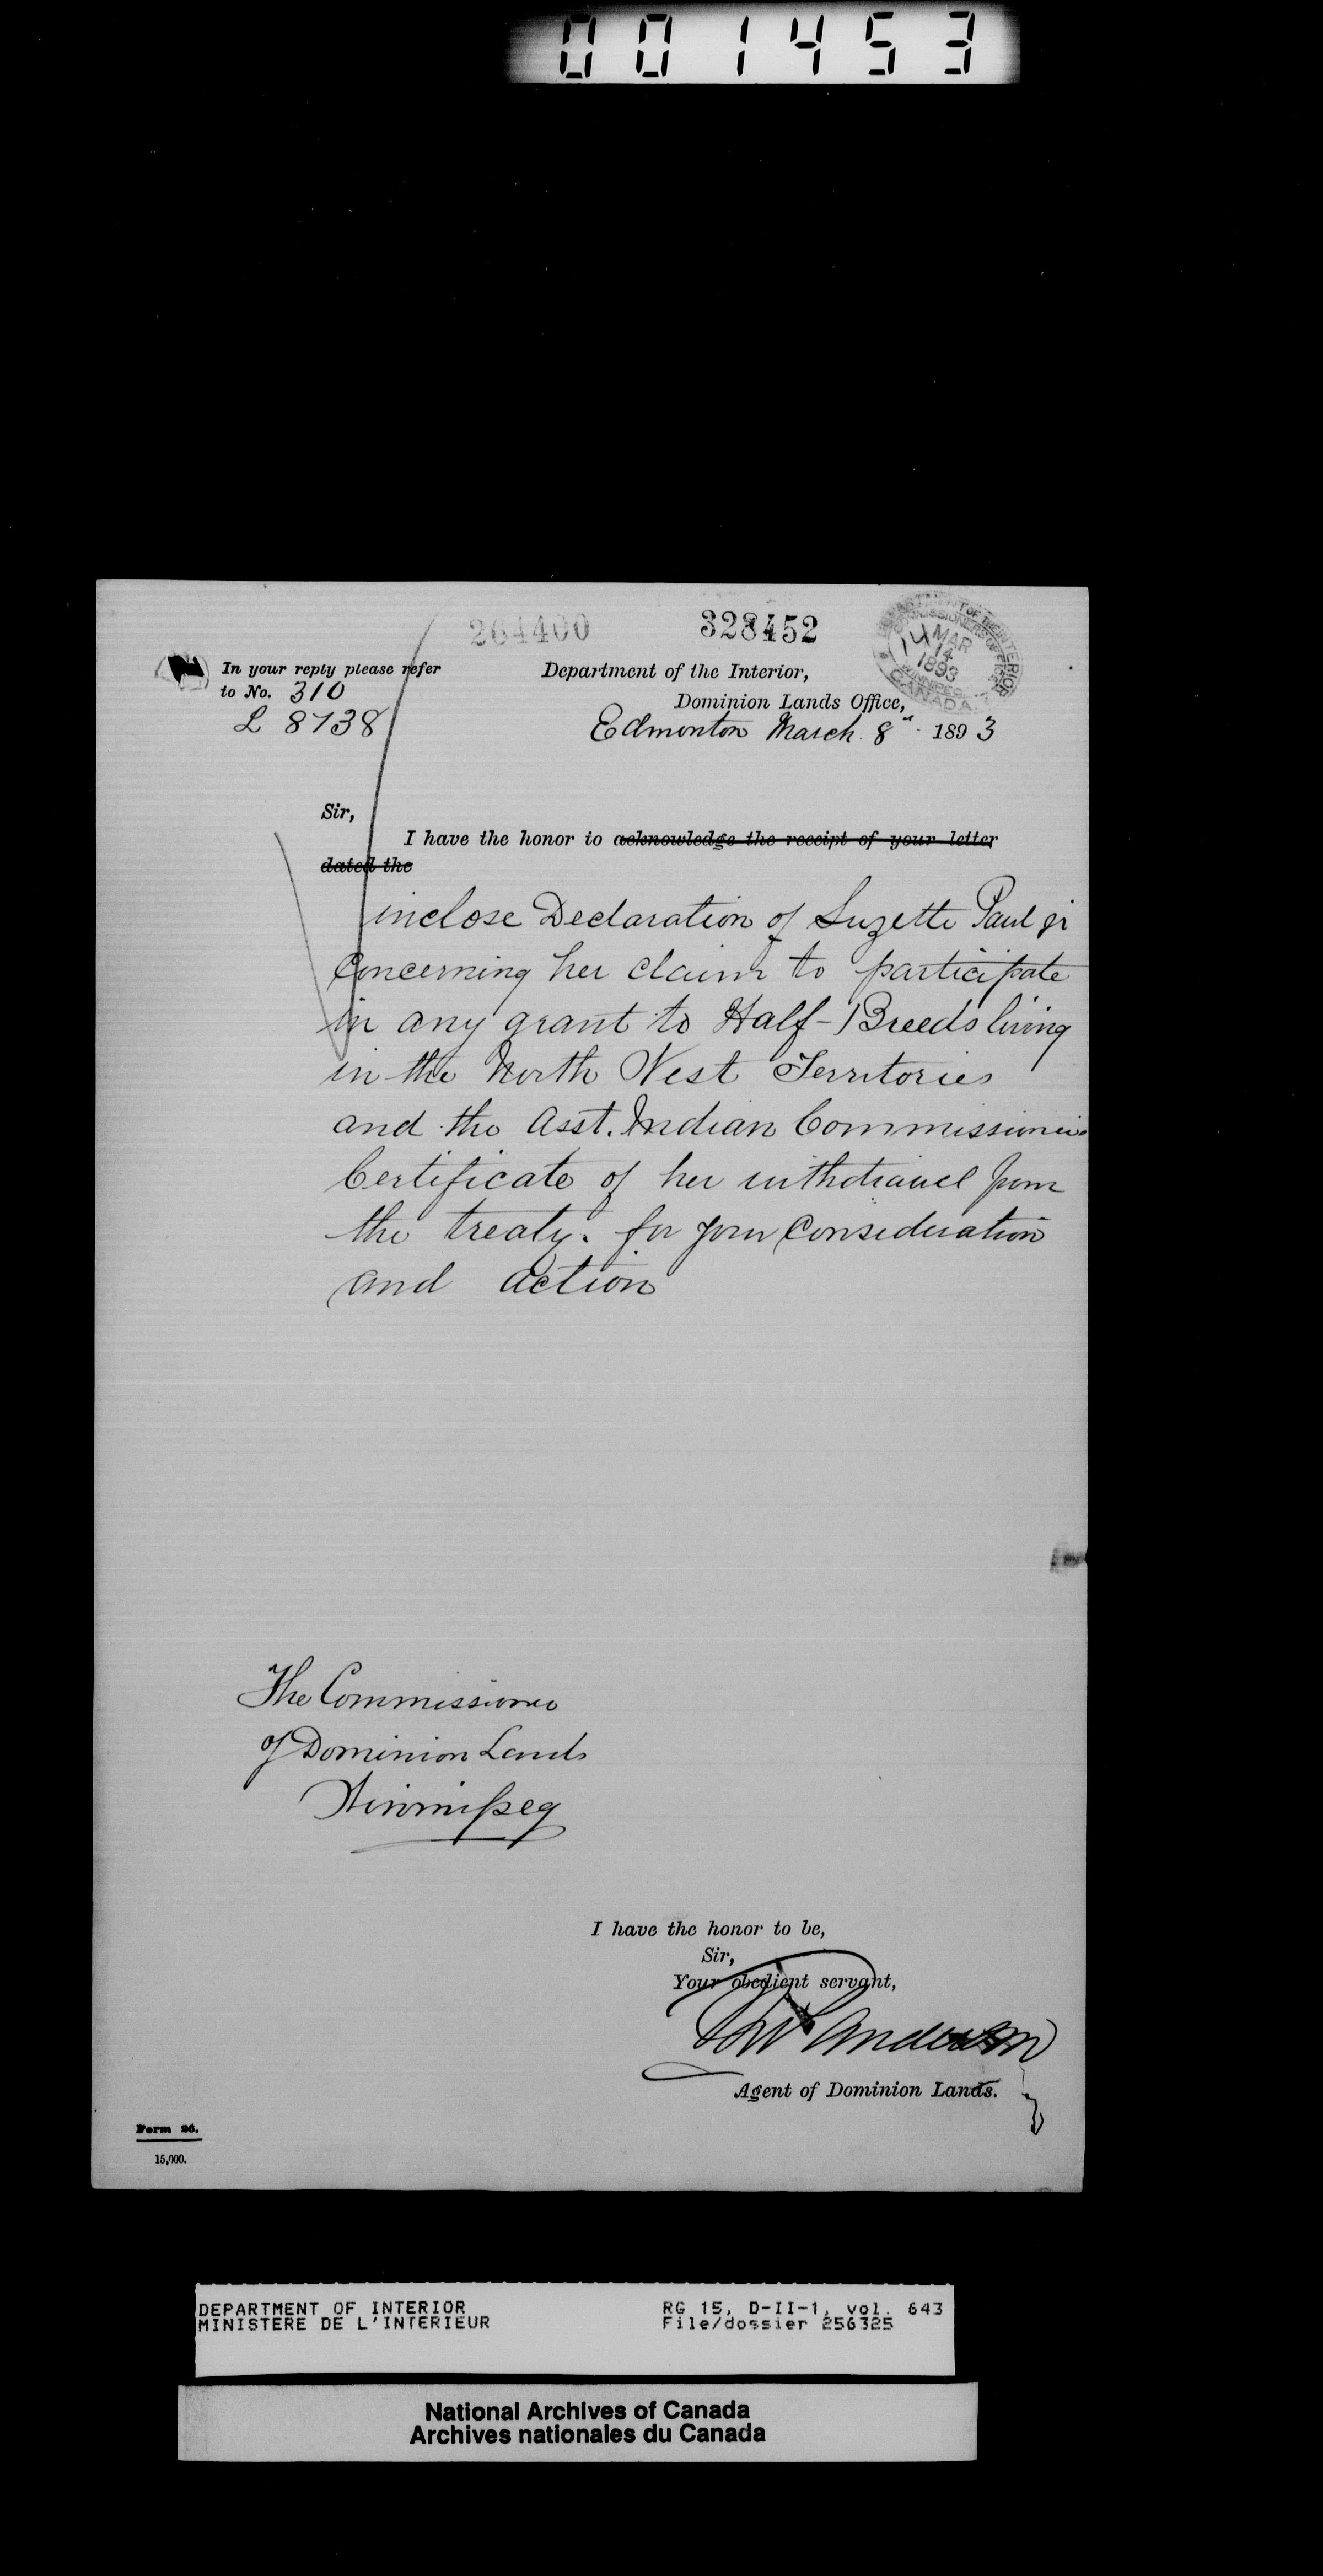 001453
264400 328452
DEPARTMENT OF THE INTERIOR
COMMISSIONER'S OFFICE
14 MAR
14
1893
WINNIPEG
CANADA
In your reply please refer
to No. 310
L 8738
Department of the Interior,
Dominion Lands Office,
Edmonton March 8th 1893
Sir,
I have the honor to acknowledge the receipt of your letter
dated the
inclose Declaration of Suzette Paul jr
Concerning her claim to participate
in any grant to Half-Breeds living
in the North West Territories
and the Asst. Indian Commissioners
Certificate of her withdrawel from
the treaty. for your Consideration
and action
The Commissioner
of Dominion Lands
Winnipeg
I have the honor to be,
Sir,
Your obedient servant,
Anderson
Agent of Dominion Lands.
Form 26.
15,000.
DEPARTMENT OF INTERIOR
MINISTERE DE L'INTERIEUR
RG 15, D-II-1, vol. 643
File/dossier 256325
National Archives of Canada
Archives nationales du Canada